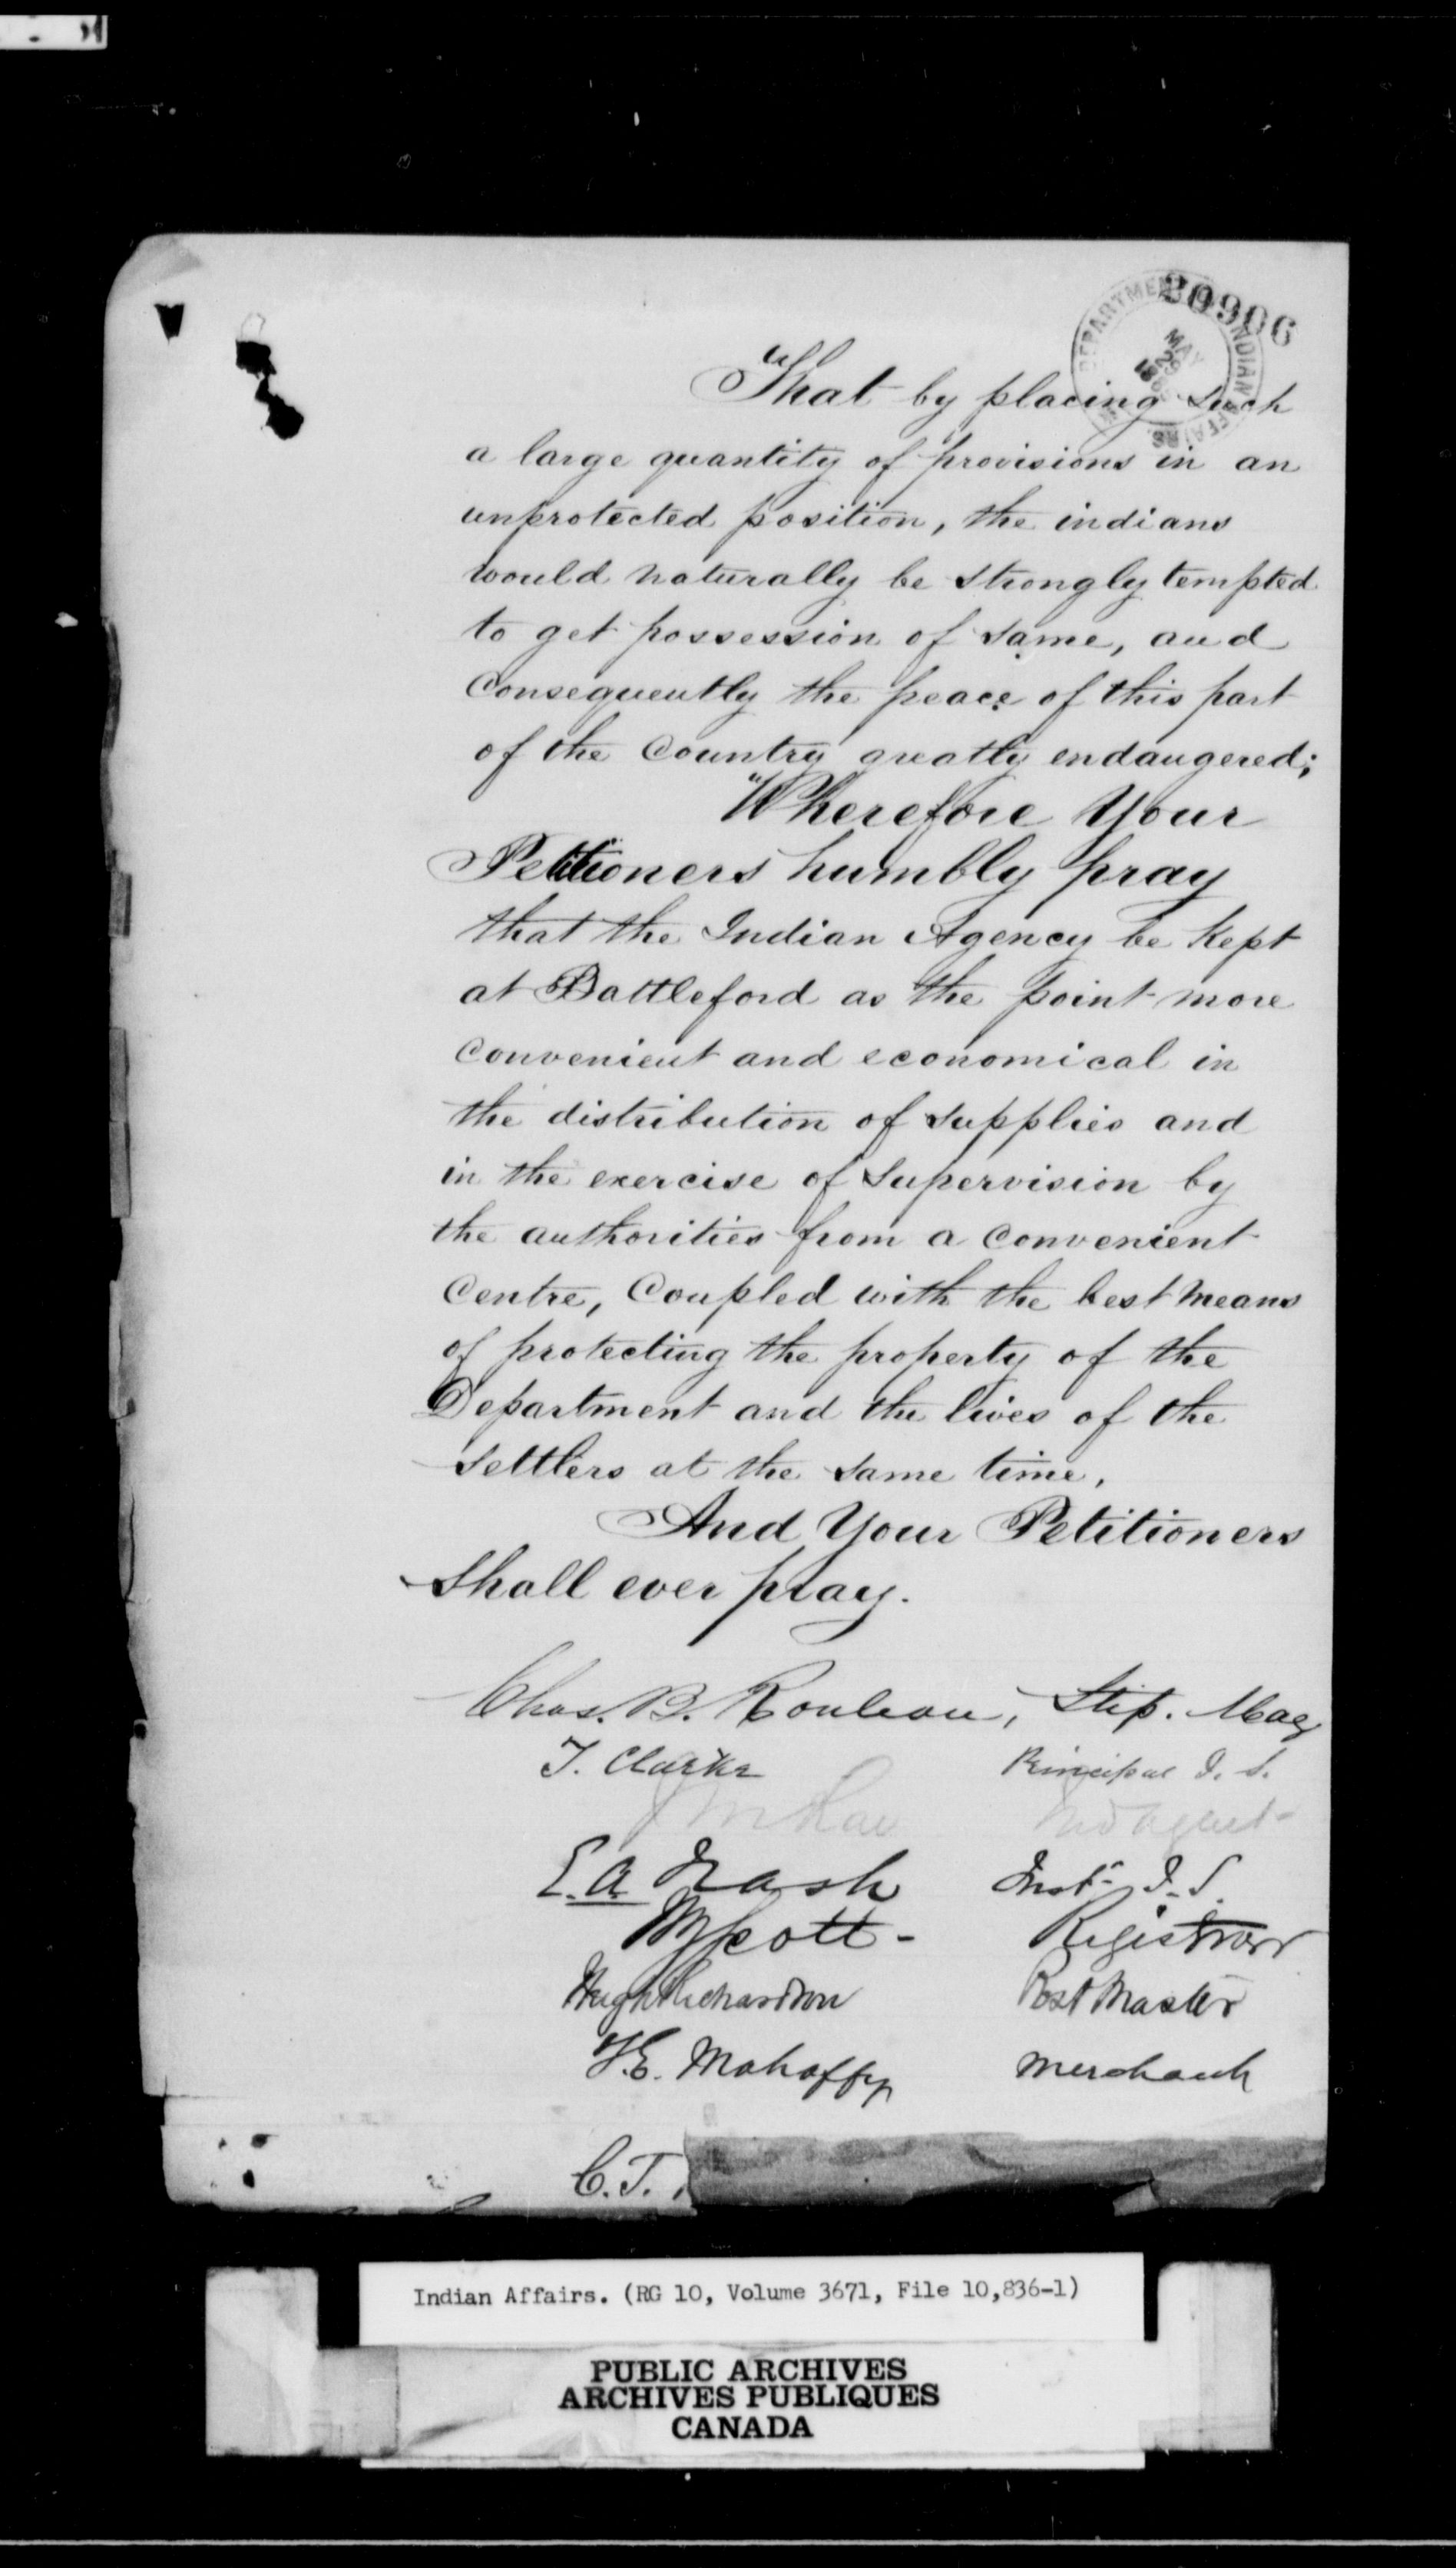 30906
DEPARTMENT INDIAN AFFAIRS
MAY
"That by placing such
a large quantity of provisions in an
unprotected position, the indians
would naturally be strongly tempted
to get possession of same, and
consequently the peace of this part
of the Country greatly endangered;
"Wherefore Your
Petitioners humbly pray
that the Indian Agency be kept
at Battleford as the point more
convenient and economical in
the distribution of supplies and
in the exercise of supervision by
the authorities from a convenient
Centre, Coupled with the best means
of protecting the property of the
Department and the lives of the
settlers at the same time.
And Your Petitioners
Shall ever pray.
Chas. B. Rouleau, Stip. Mag
T. Clarke Principal I. S.
J M Rae Ind Agent
E. A. Nash Inst. I. S.
W Scott - Registrar
Hugh Richardson Post Master
J. E. Mahaffy Merchant
C. T.
Indian Affairs. (RG 10, Volume 3671, File 10,836-1)
PUBLIC ARCHIVES
ARCHIVES PUBLIQUES
CANADA